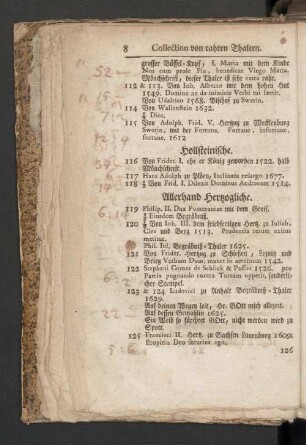 8 Collection von rahren Thalern.
grosser Büffel-Kopf, ). Maria mit dem Kinde
Nos cum prole Pia, benedicas Virgo Maria.
Mönchschrift, dieser Thaler ist sehr extra rahr.
112 & 113. Von Joh. Alberto mit dem hohen Hut
1549. Domine ne da inimicis Verbi tui lætit.
Von Udalrico 1568. Bischof zu Swerin.
114 Von Wallenstein 1632.
Dito,
115 Von Adolph. Frid. V. Hertzog zu Mecklenburg
Swerin, mit der Fortuna, Fortune, infortune,
fortune. 1612
Hollsteinische.
116 Von Frider. I. ehe er König geworden 1522. halb
Mönchschrift.
117 Hans Adolph zu Plöen, Inclinata resurgo 1677.
118 Von Frid. I. Dilexit Dominus Andream 1514.
Allerhand Hertzogliche.
119 Philip. II. Dux Pomeraniae mit dem Greif.
Eiusdem Begräbniß.
120 Von Joh. III. dem friedfertigen Hertz. zu Jülich,
Clev und Berg 1513. Prudentia rerum exitus
metitur.
Phil. Jul. Begräbniß-Thaler 1625.
121 Von Frider. Hertzog zu Schlesien, Lignitz und
Brieg Verbum Dom. manet in æternum 1542.
122 Stephani Comes de Schlick & Passau 1526. pro
Patria pugnando contra Turcam oppetii, sonderli-
cher Stempel.
123 & 124 Ludovici zu Anhalt Begräbniß-Thaler
1629.
Auf deinen Wegen leit, Hr. GOtt mich allezeit.
Auf dessen Gemahlin 1625.
Ein Weib so fürchtet GOtt, nicht werden wird zu
Spott.
125 Francisci II. Hertz. zu Sachsen Lauenburg 1609.
Propitio Deo securus ago.
126